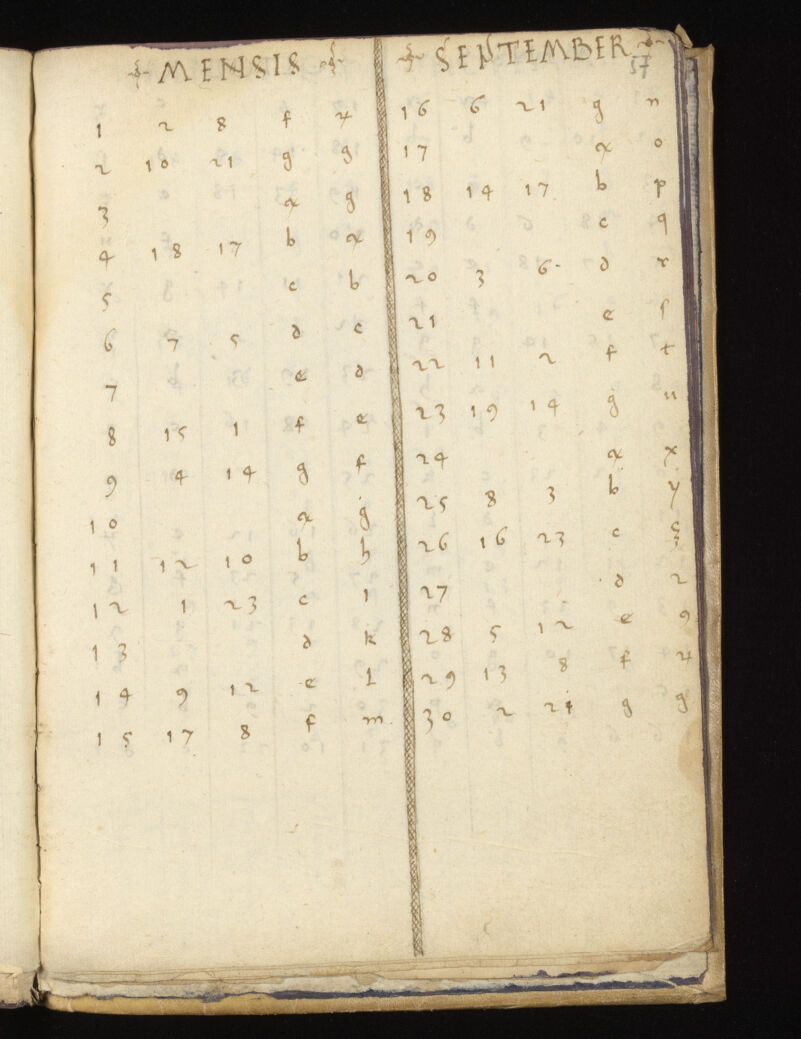 MENSIS
1 2 8 f 4
2 10 21 g g
3 a g
4 18 17 b a
5 c b
6 7 5 d c
7 e d
8 15 1 f e
9 4 14 g f
10 a g
11 12 10 b h
12 1 23 c i
13 d k
14 9 12 e l
15 17 8 f m
SEPTEMBER
57
16 6 21 g n
17 a o
18 14 17 b p
19 c q
20 3 6 d r
21 e ſ
22 11 2 f t
23 19 14 g u
24 a x
25 8 3 b y
26 16 23 c
27 d 2
28 5 12 e 9
29 13 8 f 4
30 2 21 g g